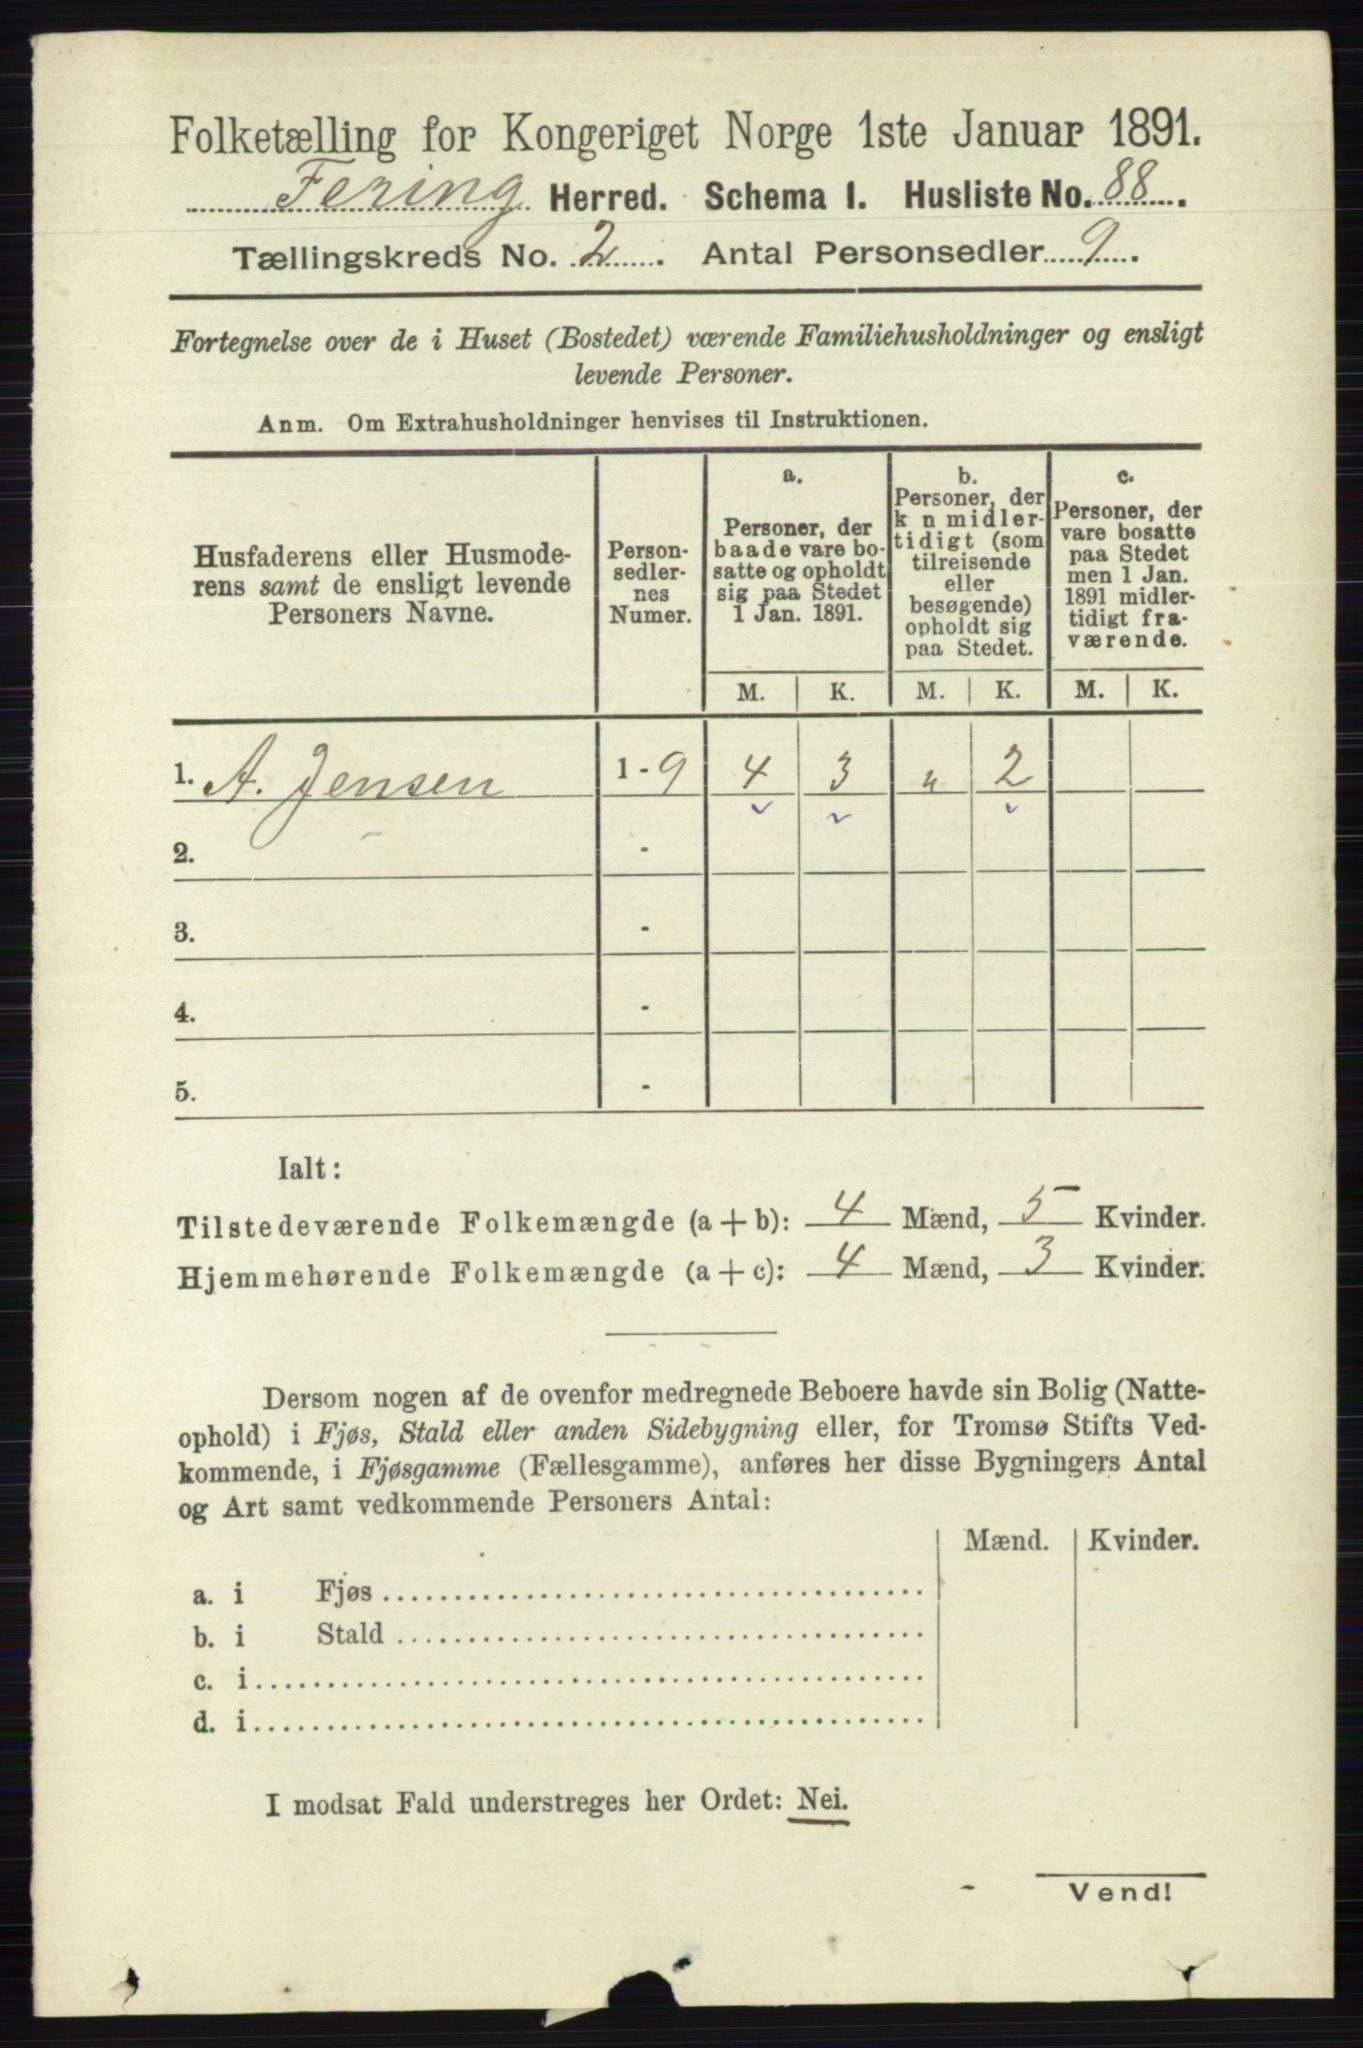 Folketælling for Kongeriget Norge 1ste Januar 1891.
Fering Herred. Schema I. Husliste No. 88.
Tællingskreds No. 2. Antal Personsedler 9.
Fortegnelse over de i Huset (Bostedet) værende Familiehusholdninger og ensligt
levende Personer.
Anm. Om Extrahusholdninger henvises til Instruktionen.
Husfaderens eller Husmode-
rens samt de ensligt levende
Personers Navne.
Person-
sedler-
nes
Numer.
a.
Personer, der
baade vare bo-
satte og opholdt
sig paa Stedet
1 Jan. 1891.
b.
Personer, der
k n midler-
tidigt (som
tilreisende
eller
besøgende)
opholdt sig
paa Stedet.
c.
Personer, der
vare bosatte
paa Stedet
men 1 Jan.
1891 midler-
tidigt fra-
værende.
M. K. M. K. M. K.
1. A. Jensen 1-9 4 3 " 2
2. -
3. -
4. -
5. -
Ialt:
Tilstedeværende Folkemængde (a + b): 4 Mænd, 5 Kvinder.
Hjemmehørende Folkemængde (a + c): 4 Mænd, 3 Kvinder.
Dersom nogen af de ovenfor medregnede Beboere havde sin Bolig (Natte-
ophold) i Fjøs, Stald eller anden Sidebygning eller, for Tromsø Stifts Ved-
kommende, i Fjøsgamme (Fællesgamme), anføres her disse Bygningers Antal
og Art samt vedkommende Personers Antal:
Mænd. Kvinder.
a. i Fjøs
b. i Stald
c. i
d. i
I modsat Fald understreges her Ordet: Nei.
Vend!